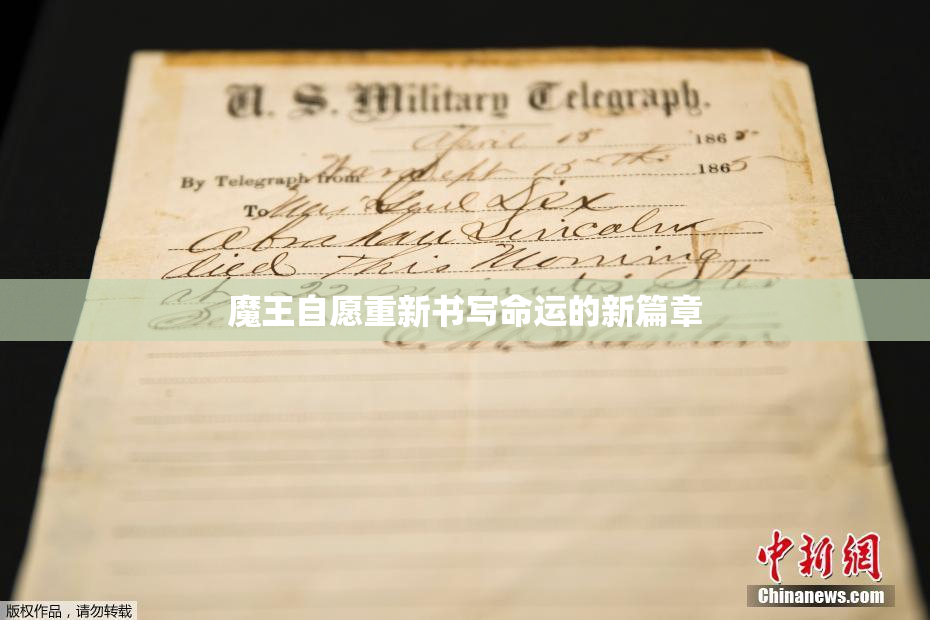 U. S. Military Telegraph.
April 15 1865
By Telegraph from War Dept 15th 1865
To Maj Genl Dix
Abraham Lincoln
died This Morning
at 22 minutes after
魔王自愿重新书写命运的新篇章
Stanton
中新网
Chinanews.com
版权作品，请勿转载